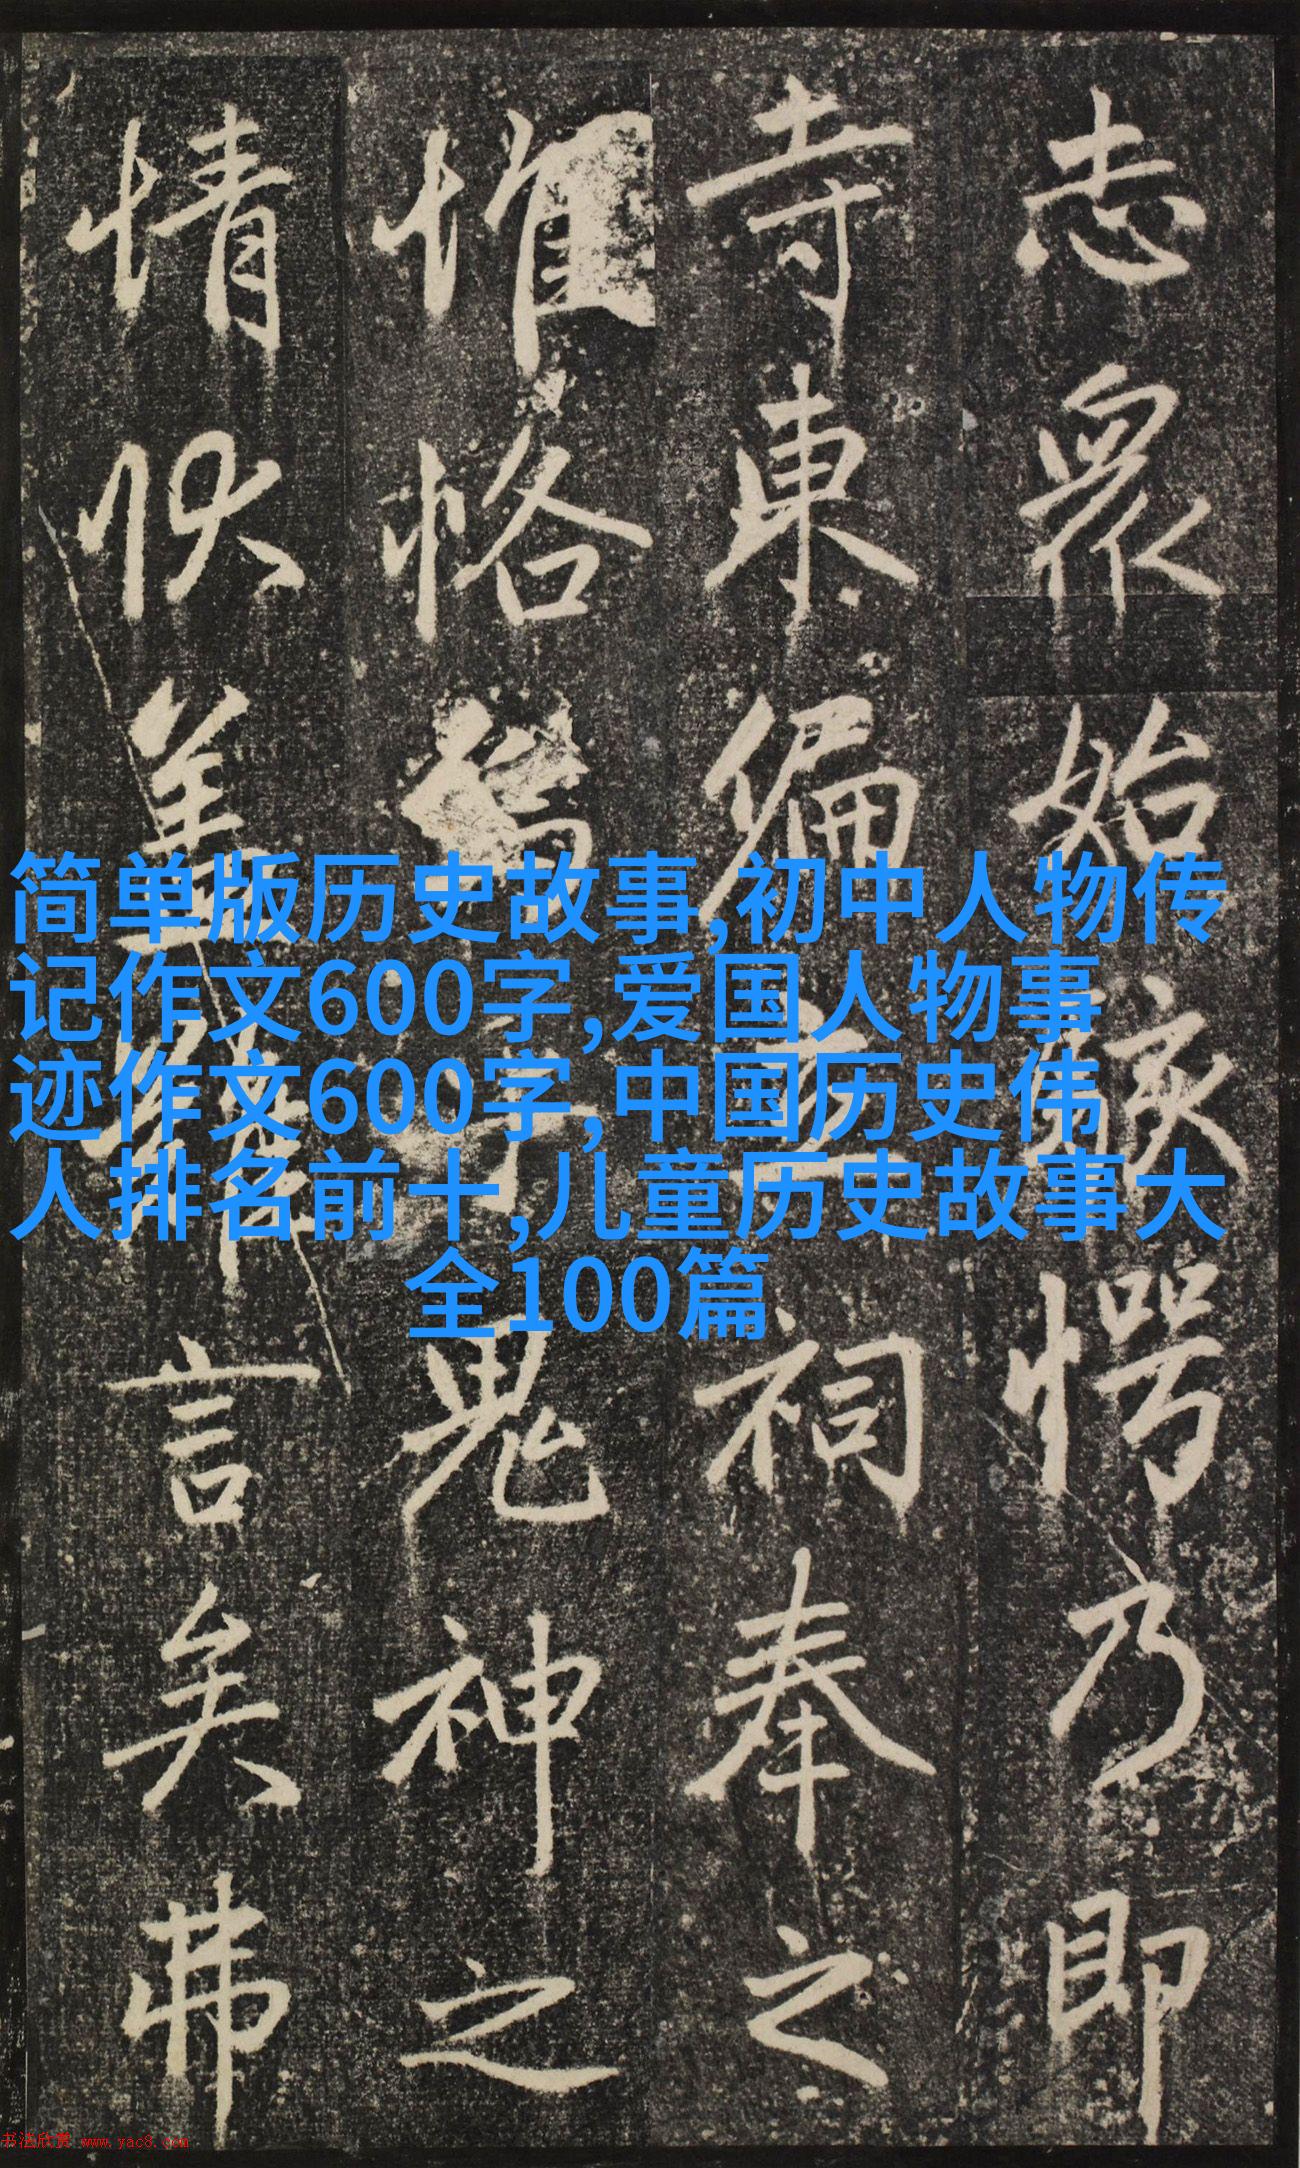 志眾始駭愕乃即
寺東偏祠奉之
惟恪鬼神之
情狀蓋難言矣弗
简单版历史故事,初中人物传
记作文600字,爱国人物事
迹作文600字,中国历史伟
人排名前十,儿童历史故事大
全100篇
书法欣赏 www.yac8.com